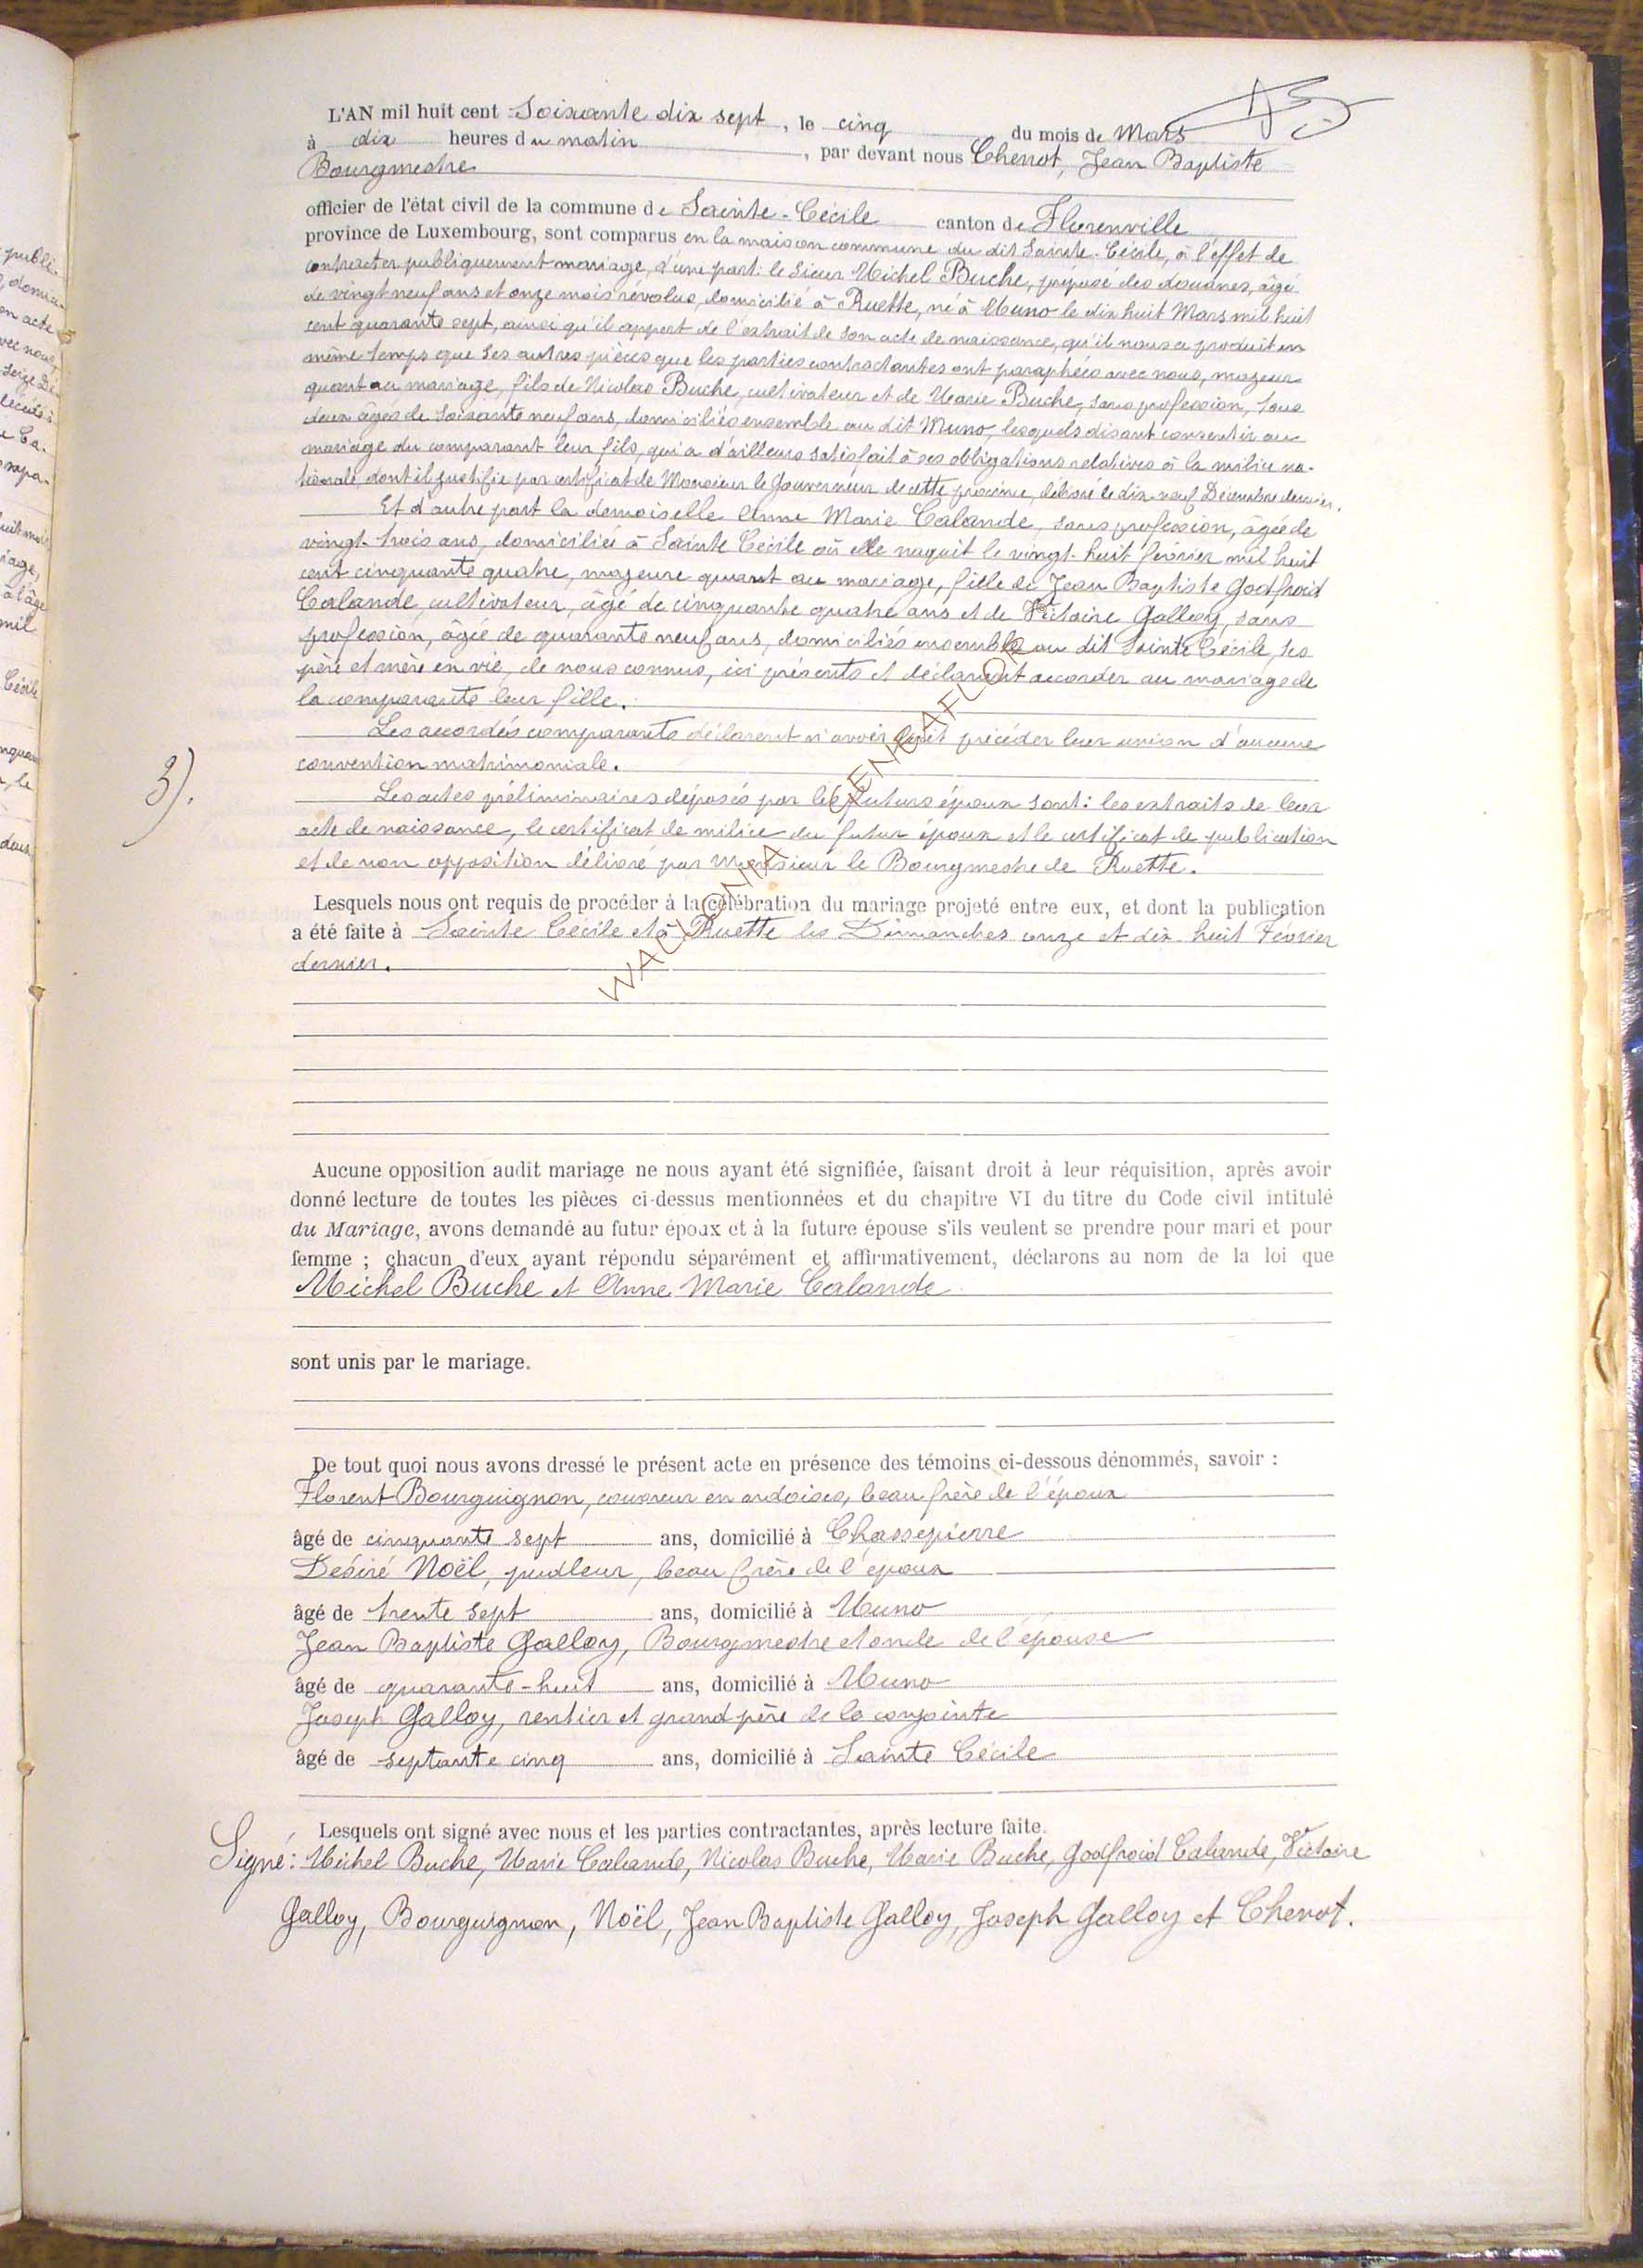 L'AN mil huit cent Soixante dix sept, le cinq du mois de Mars
à dix heures du matin, par devant nous Chenot, Jean Baptiste
Bourgmestre
officier de l'état civil de la commune de Sainte-Cécile canton de Florenville
province de Luxembourg, sont comparus en la maison commune du dit Sainte-Cécile, à l'effet de
contracter publiquement mariage, d'une part: le Sieur Michel Buche, préposé des douanes, âgé
de vingt neuf ans et onze mois révolus, domicilié à Ruette, né à Muno le dix huit Mars mil huit
cent quarante sept, ainsi qu'il appert de l'extrait de son acte de naissance, qu'il nous a produit en
même temps que ses autres pièces que les parties contractantes ont paraphées avec nous, majeur
quant au mariage, fils de Nicolas Buche, cultivateur et de Marie Buche, sans profession, tous
deux âgés de soixante neuf ans, domiciliés ensemble au dit Muno, lesquels disant consentir au
mariage du comparant leur fils, qui a d'ailleurs satisfait à ses obligations relatives à la milice na-
tionale, dont il justifie par certificat de Monsieur le Gouverneur de cette province, délivré le dix neuf Décembre dernier.
Et d'autre part la demoiselle Anne Marie Calande, sans profession, âgée de
vingt-trois ans, domiciliée à Sainte Cécile où elle naquit le vingt-huit février mil huit
cent cinquante quatre, majeure quant au mariage, fille de Jean Baptiste Godfroid
Calande, cultivateur, âgé de cinquante quatre ans et de Victoire Galloy, sans
profession, âgée de quarante neuf ans, domiciliés ensemble au dit Sainte Cécile, ses
père et mère en vie, de nous connus, ici présents et déclarant accorder au mariage de
la comparante leur fille.
Les accordés comparants déclarent n'avoir fait précéder leur union d'aucune
convention matrimoniale.
3).
Les actes préliminaires déposés par les futurs époux sont: les extraits de leur
acte de naissance, le certificat de milice du futur époux et le certificat de publication
et de non opposition délivré par Monsieur le Bourgmestre de Ruette.
Lesquels nous ont requis de procéder à la célébration du mariage projeté entre eux, et dont la publication
a été faite à Sainte Cécile et à Ruette les Dimanches onze et dix-huit Février
dernier.
WALLONIA GENEAFLOR
Aucune opposition audit mariage ne nous ayant été signifiée, faisant droit à leur réquisition, après avoir
donné lecture de toutes les pièces ci-dessus mentionnées et du chapitre VI du titre du Code civil intitulé
du Mariage, avons demandé au futur époux et à la future épouse s'ils veulent se prendre pour mari et pour
femme ; chacun d'eux ayant répondu séparément et affirmativement, déclarons au nom de la loi que
Michel Buche et Anne Marie Calande
sont unis par le mariage.
De tout quoi nous avons dressé le présent acte en présence des témoins ci-dessous dénommés, savoir :
Florent Bourguignon, couvreur en ardoises, beau frère de l'époux
âgé de cinquante sept ans, domicilié à Chassepierre
Désiré Noël, pudleur, beau frère de l'époux
âgé de trente sept ans, domicilié à Muno
Jean Baptiste Galloy, Bourgmestre et oncle de l'épouse
âgé de quarante-huit ans, domicilié à Muno
Joseph Galloy, rentier et grand père de la conjointe
âgé de septante cinq ans, domicilié à Sainte Cécile
Lesquels ont signé avec nous et les parties contractantes, après lecture faite.
Signé: Michel Buche, Marie Calande, Nicolas Buche, Marie Buche, Godfroid Calande, Victoire
Galloy, Bourguignon, Noël, Jean Baptiste Galloy, Joseph Galloy et Chenot.